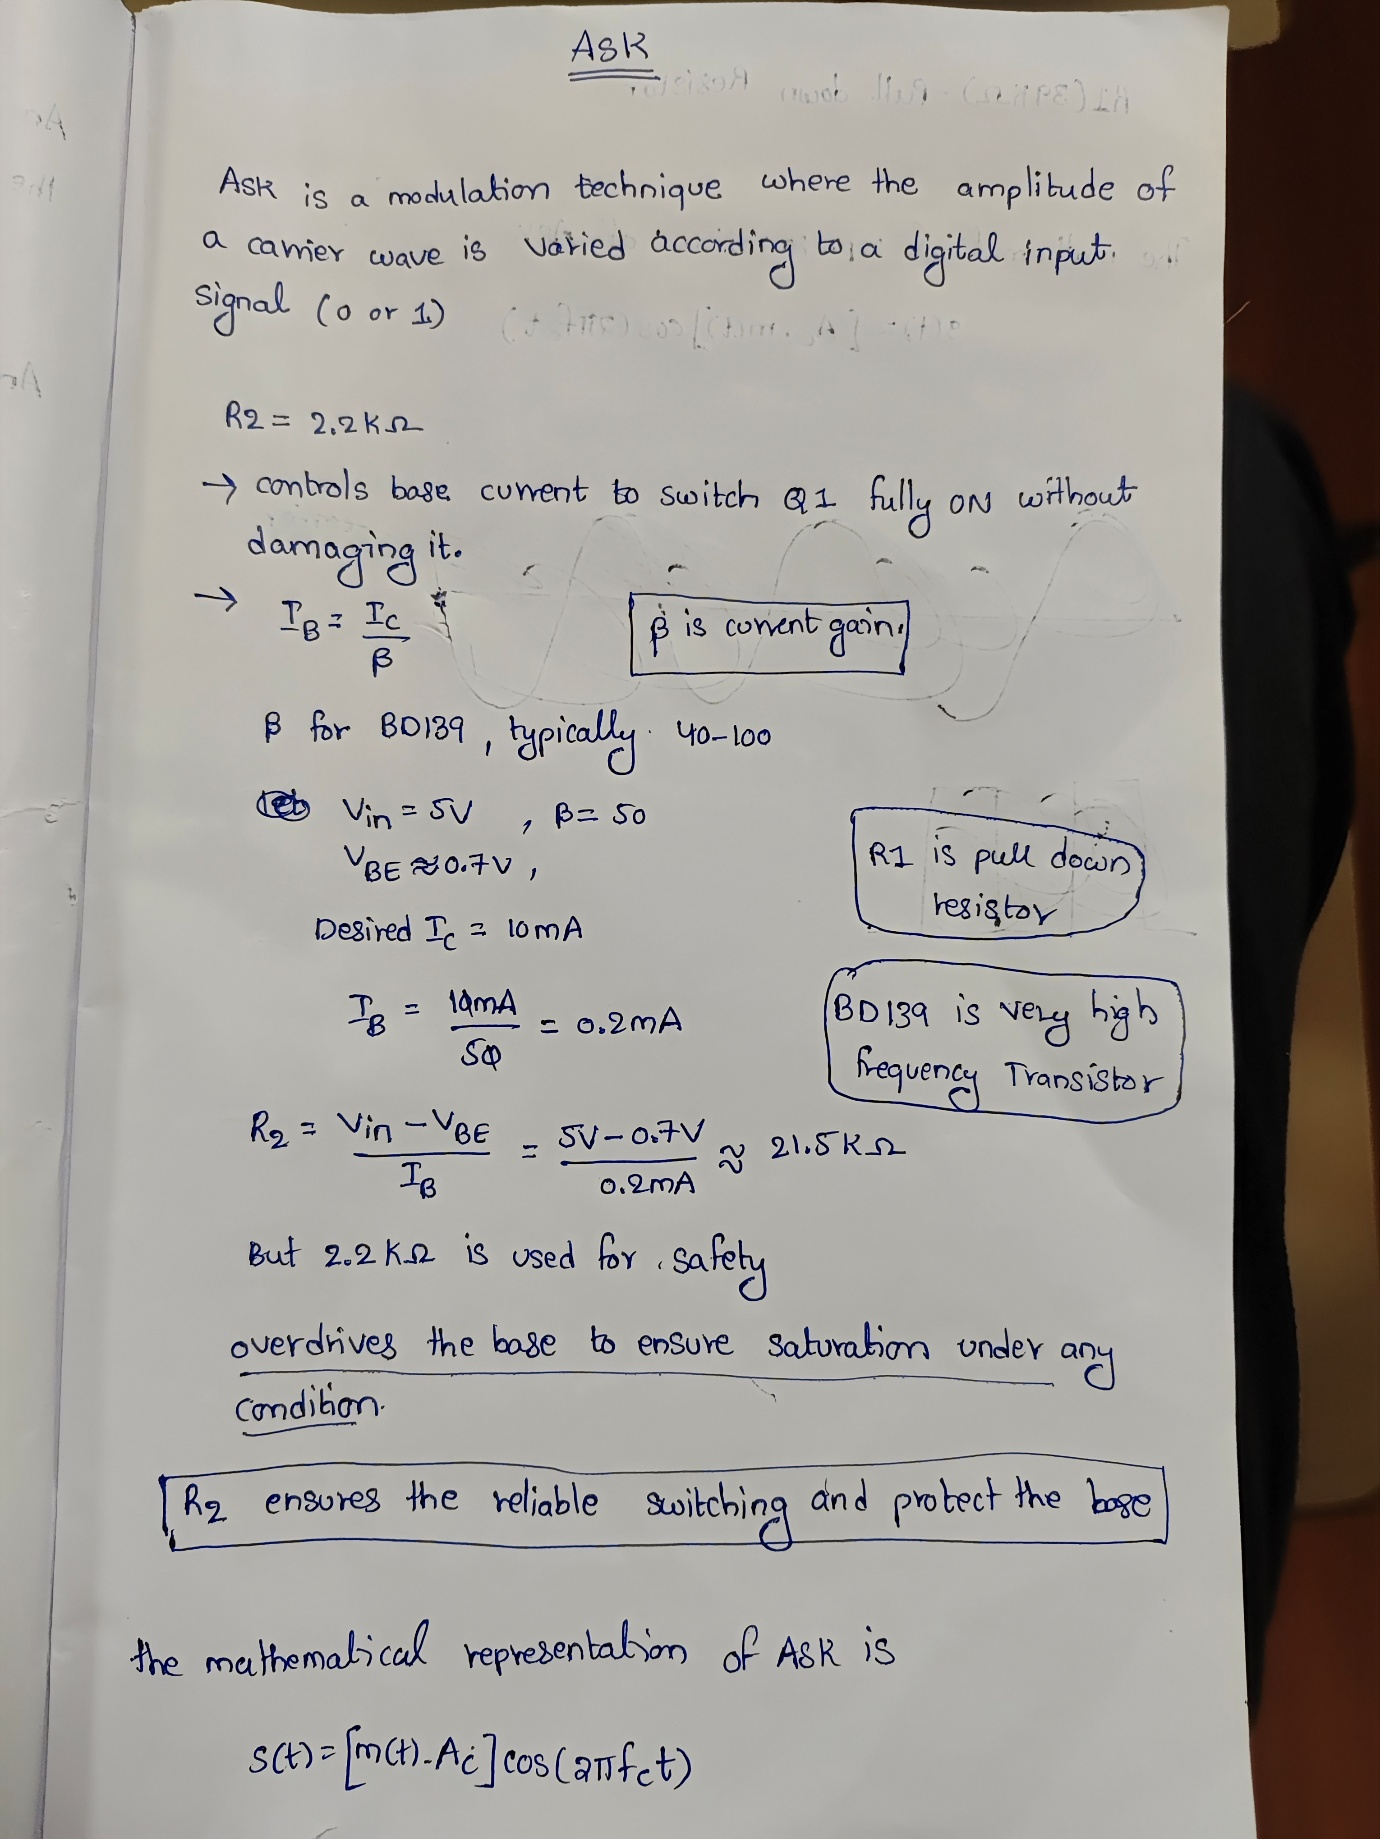 ASK
ASK is a modulation technique where the amplitude of
a carrier wave is varied according to a digital input
signal (0 or 1)
R2 = 2.2KΩ
→ controls base current to switch Q1 fully ON without
damaging it.
→ I_B = I_C / β
β is current gain.
β for BD139, typically 40-100
Vin = 5V , β = 50
V_BE ≈ 0.7V ,
R1 is pull down
resistor
Desired I_C = 10mA
I_B = 10mA / 50 = 0.2mA
BD139 is very high
frequency Transistor
R2 = Vin - V_BE / I_B = 5V - 0.7V / 0.2mA ≈ 21.5KΩ
But 2.2KΩ is used for safety
overdrives the base to ensure saturation under any
condition.
R2 ensures the reliable switching and protect the base
the mathematical representation of ASK is
s(t) = [m(t).Ac] cos(2πfct)